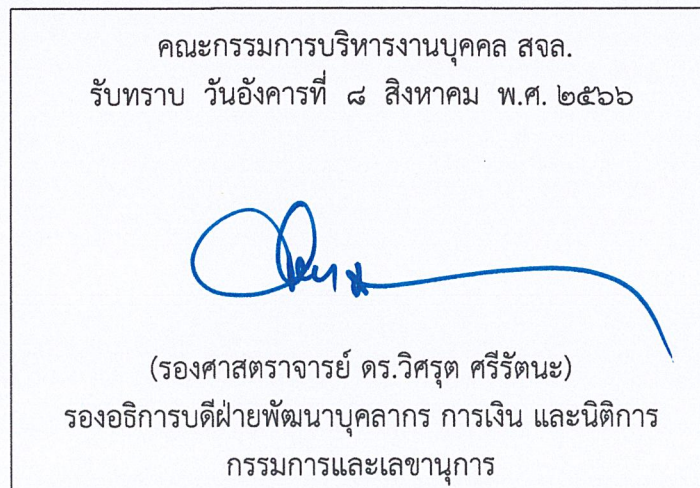 คณะกรรมการบริหารงานบุคคล สจล.
รับทราบ วันอังคารที่ ๘ สิงหาคม พ.ศ. ๒๕๖๖
(รองศาสตราจารย์ ดร.วิศรุต ศรีรัตนะ)
รองอธิการบดีฝ่ายพัฒนาบุคลากร การเงิน และนิติการ
กรรมการและเลขานุการ